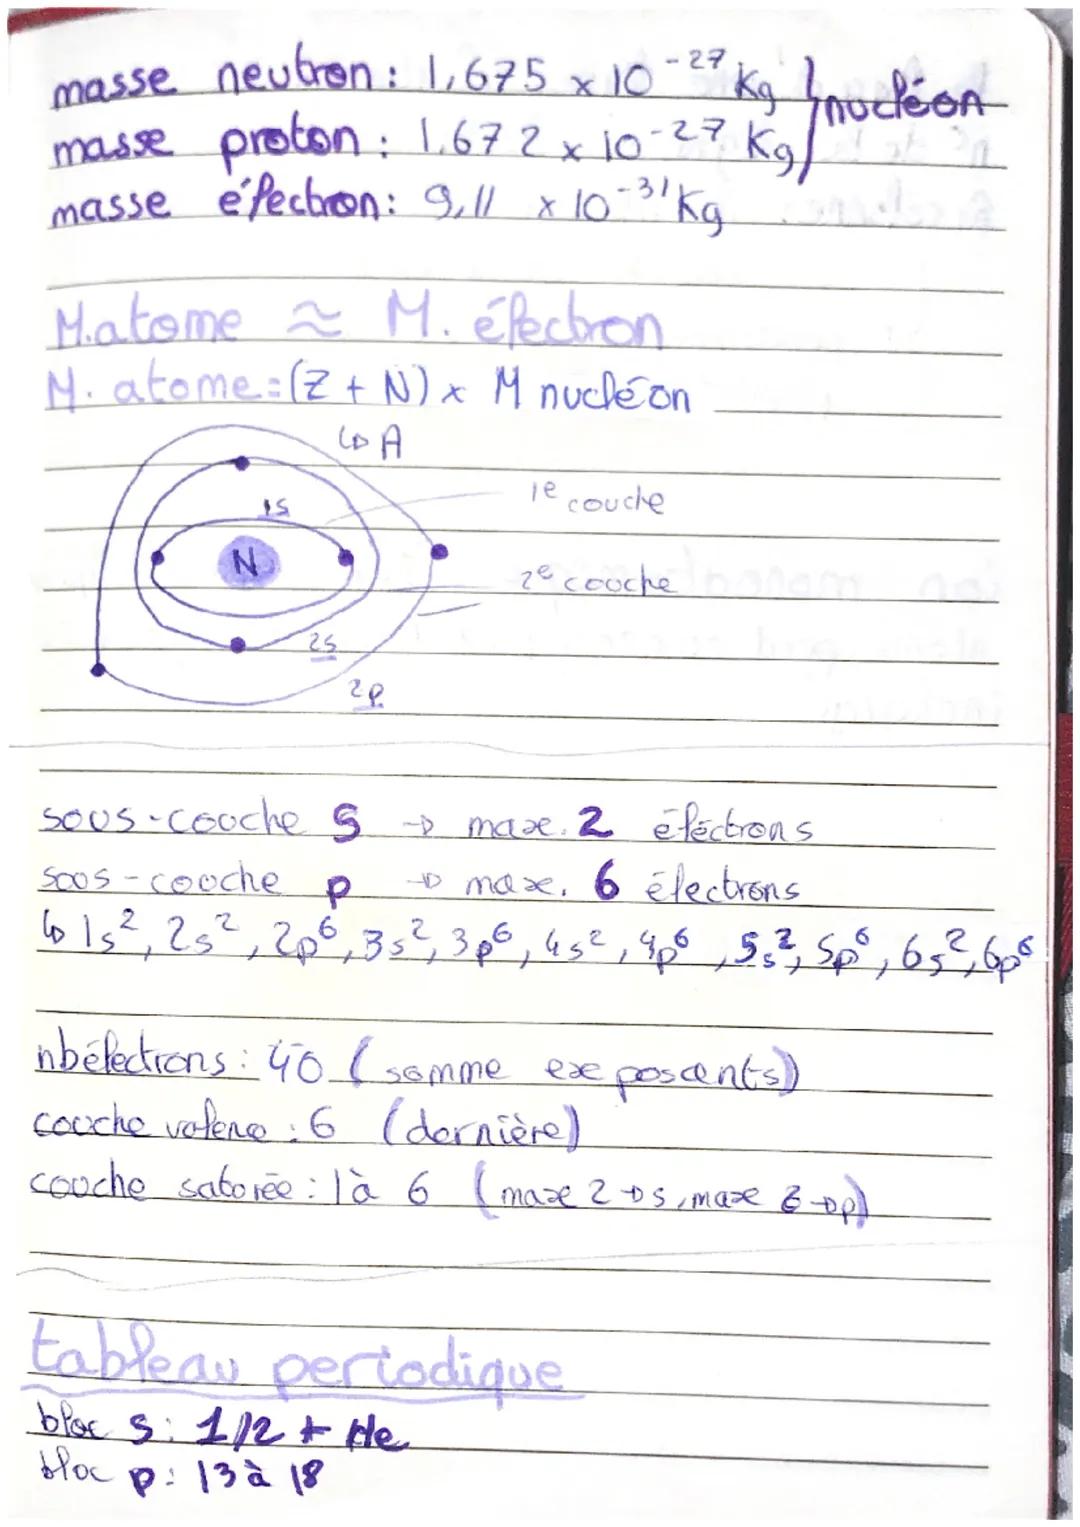 masse neutron : 1,675 x 10⁻²⁷ Kg } nucléon
masse proton : 1.672 x 10⁻²⁷ Kg
masse électron : 9,11 x 10⁻³¹ Kg
M.atome ≈ M. électron
M. atome = (Z + N) x M nucléon
↳ A
1e couche
1s
N
2e couche
2s
2p
sous-couche s → max. 2 électrons
sous-couche p → max. 6 électrons
↳ 1s², 2s², 2p⁶, 3s², 3p⁶, 4s², 4p⁶, 5s², 5p⁶, 6s², 6p⁶
nb électrons : 40 (somme exposcents)
couche valence : 6 (dernière)
couche saturée : 1 à 6 (max 2 → s, max 6 → p)
tableau periodique
bloc s : 1/2 + He
bloc p : 13 à 18